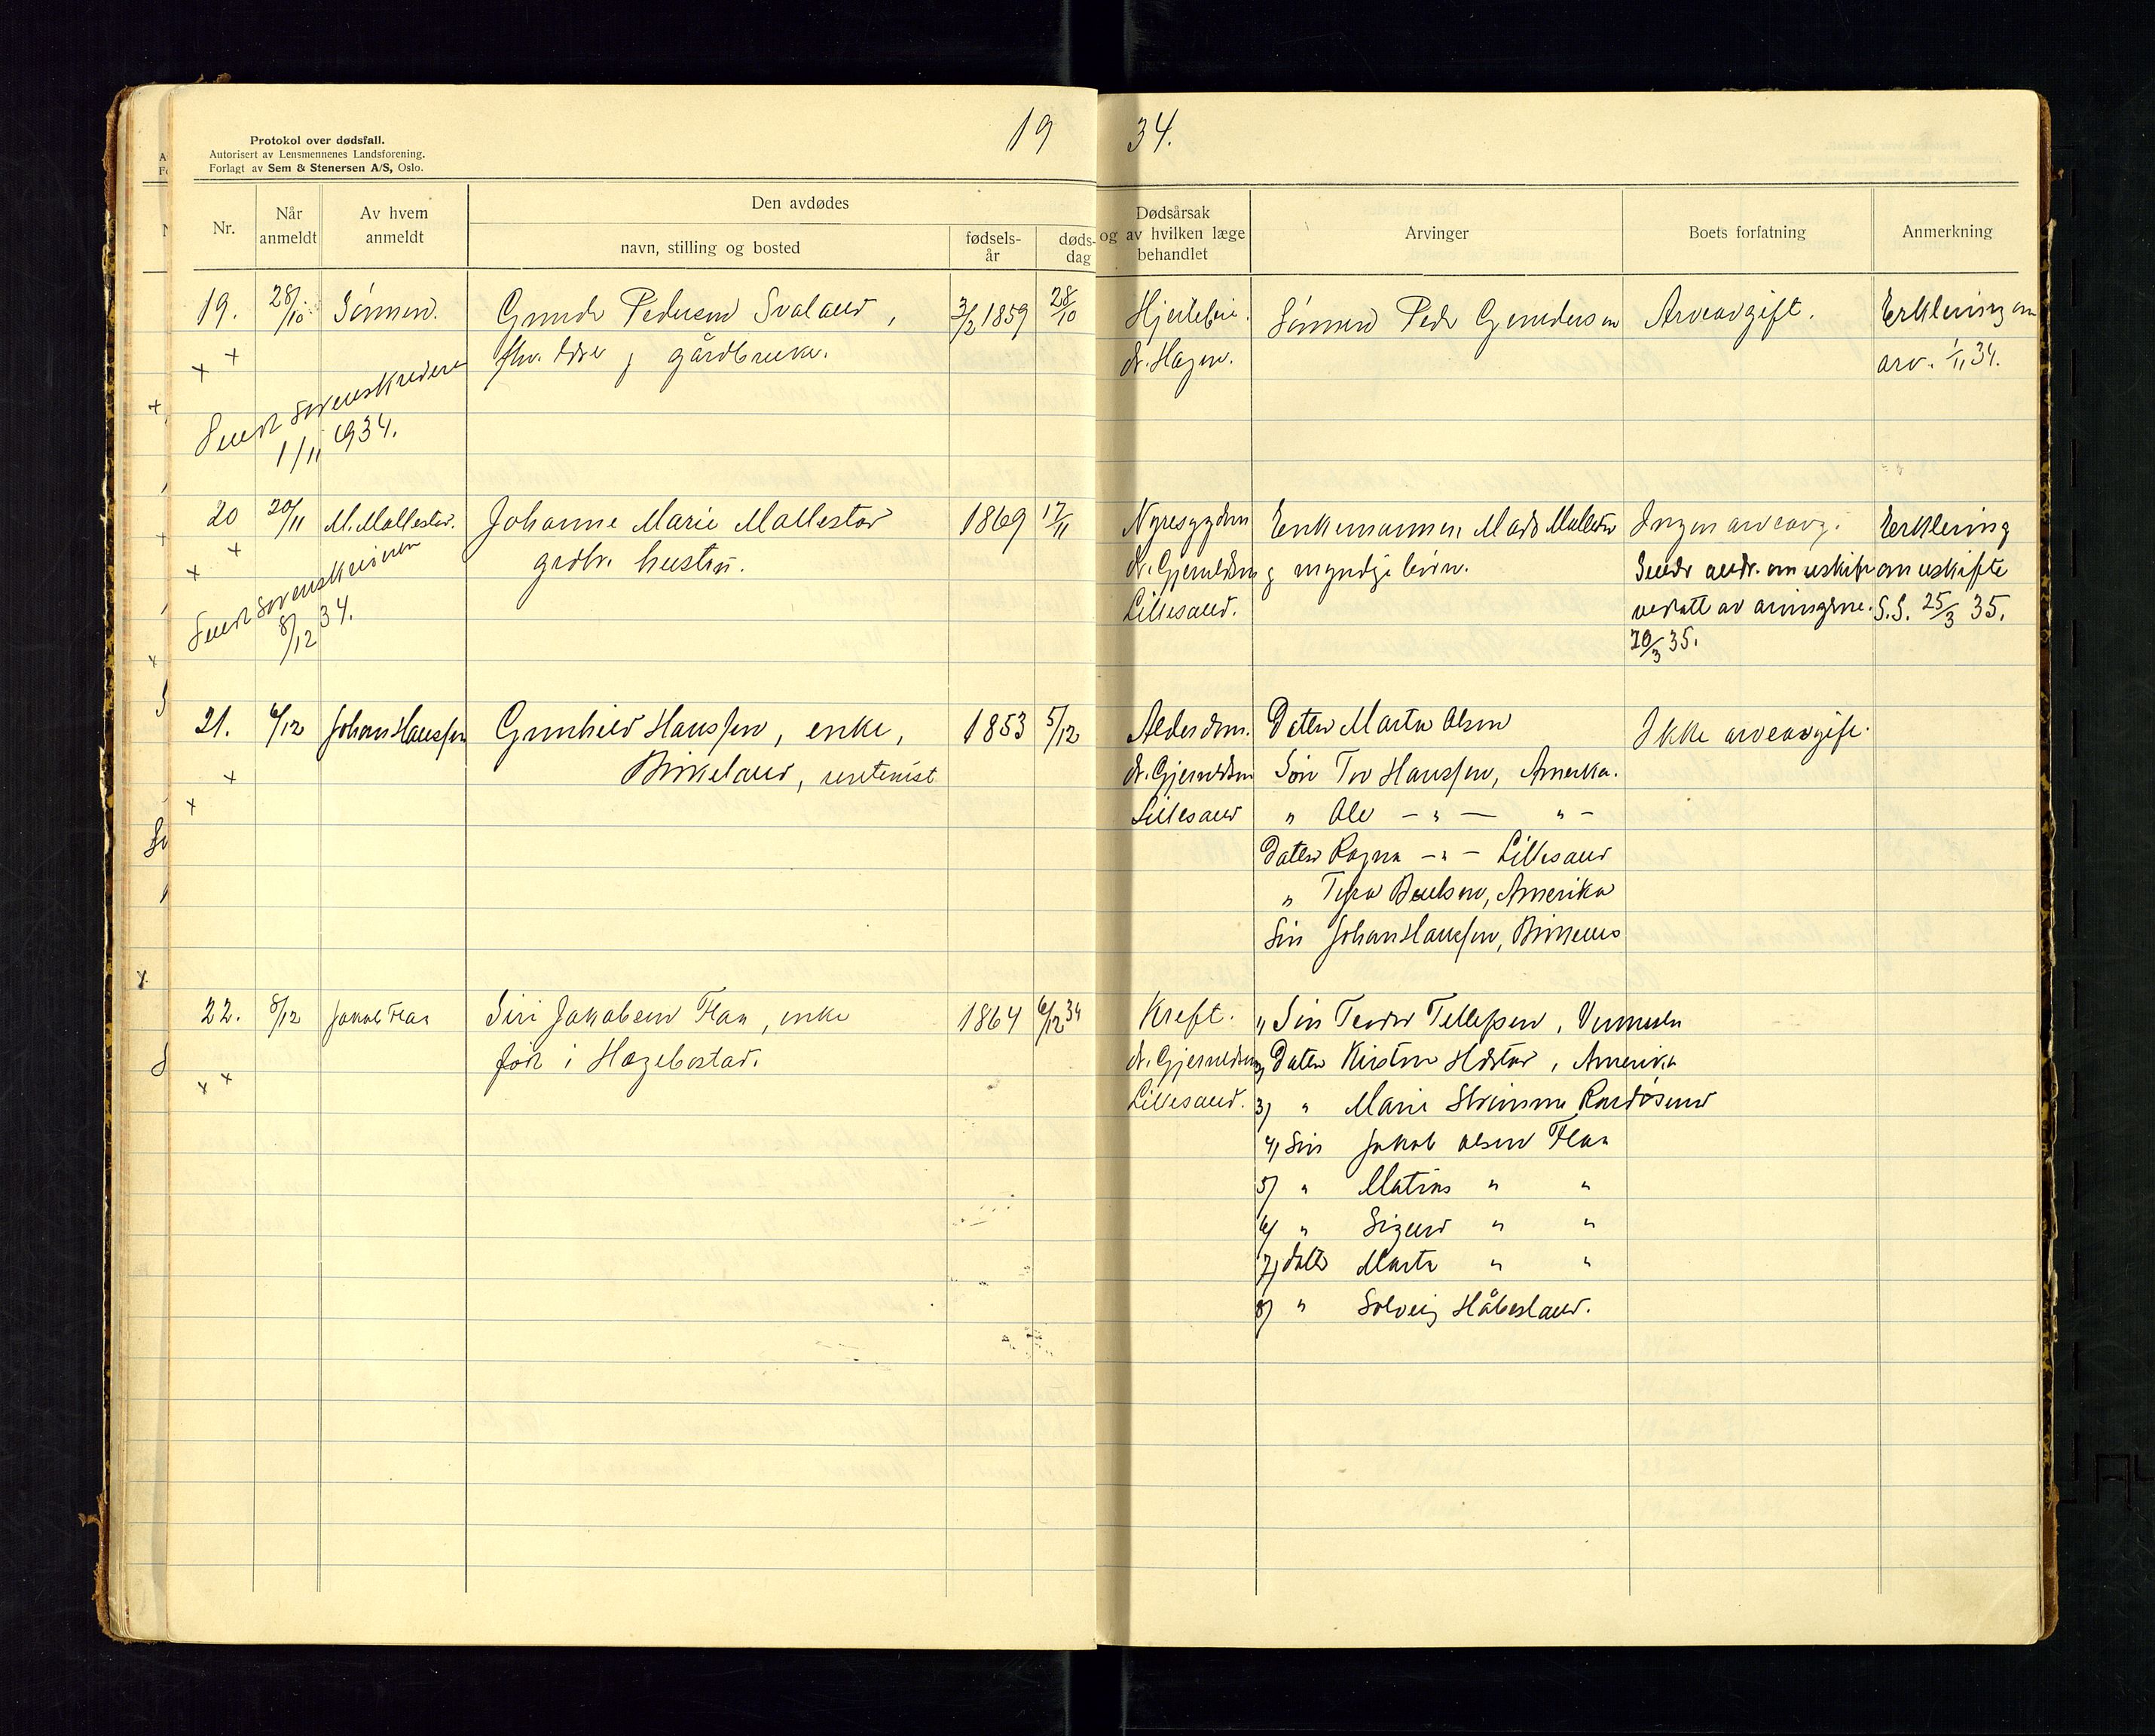 19 34.
Protokol over dødsfall.
Autorisert av Lensmennenes Landsforening.
Forlagt av Sem & Stenersen A/S, Oslo.
Nr.
Når anmeldt
Av hvem anmeldt
Den avdødes
navn, stilling og bosted
fødsels-år
døds-dag
Dødsårsak og av hvilken læge behandlet
Arvinger
Boets forfatning
Anmerkning
19. 28/10 Sønnen. Gunder Pedersen Svaland, 3/2 1859 28/10 Hjertefeil. Sønnen Peder Gundersen Arveavgift. Erklæring om
fhv. og gårdbruker. dr. Hagen. arv. 1/11 34.
Sendt Sorenskriveren
1/11 1934.
20 20/11 M. Mollestad. Johanne Marie Mollestad 1869 17/11 Nyresygdom Enkemannen Mads Mollestad Ingen arveavg. Erklering
grdbr. hustru. dr. Gjeruldsen og myndige børn. Sendt andr. om uskifte om uskifte
Lillesand. vedtatt av arvingene. S.S. 25/3 35.
20/3 35.
Sendt Sorenskriveren
8/12 34.
21. 6/12 Johan Hanssen Gunhild Hanssen, enke, 1853 5/12 Alderdom. Datter Marta Olsen Ikke arveavgift.
Birkeland, rentenist dr. Gjeruldsen Søn Tor Hanssen, Amerika.
Lillesand " Ole — " — " —
Datter Ragna — " — Lillesand
" Paulsen, Amerika
Søn Johan Hanssen, Birkeland
22. 8/12 Jakob Flaa Siri Jakobsen Flaa, enke 1864 6/12 34 Kreft. 1) Søn Teodor Tellefsen, Vennesla
født i Hægebostad. dr. Gjeruldsen 2) Datter Kirsten, Amerika
Lillesand. 3) " Marie Randøsund
4) Søn Jakob Olsen Flaa
5) " Matias " "
6) " Sigurd " "
7) datter Marta " "
8) " Solveig Håbesland.